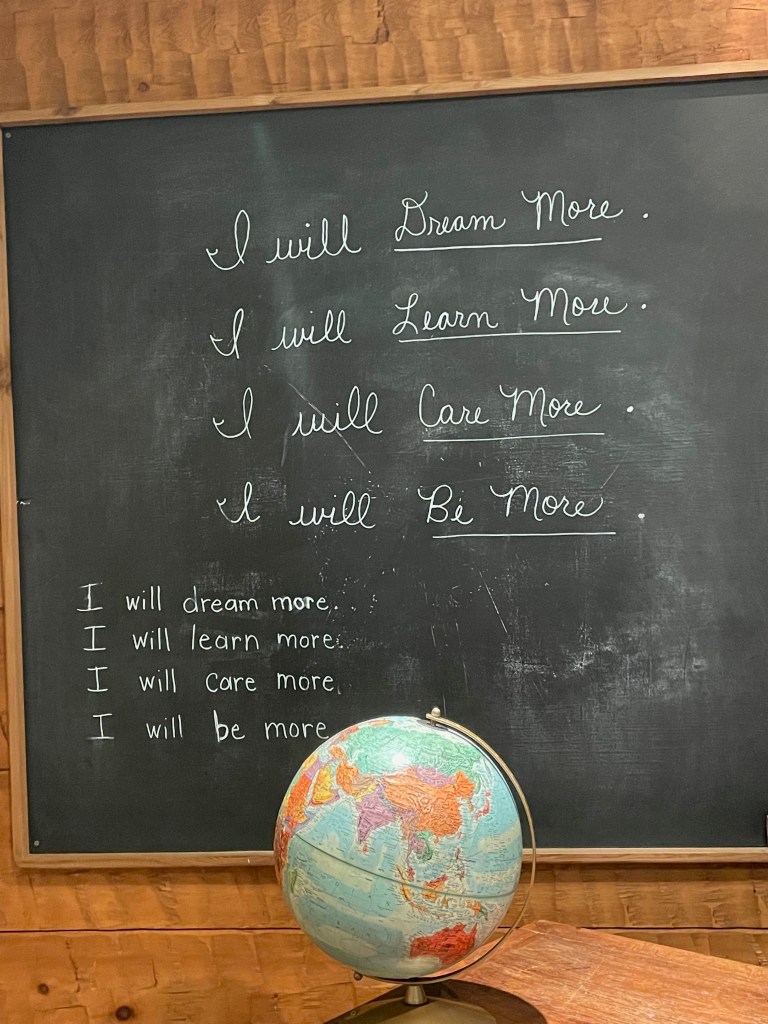 I will Dream More.
I will Learn More.
I will Care More.
I will Be More.
I will dream more.
I will learn more.
I will care more.
I will be more